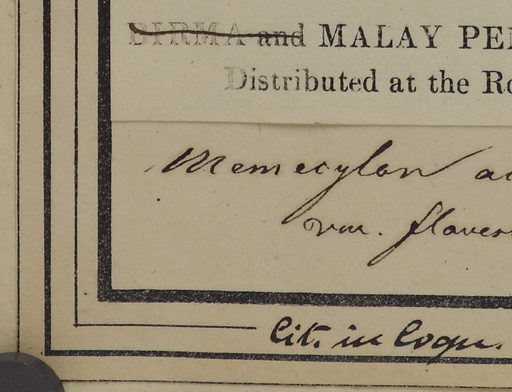 BIRMA and MALAY PE
Distributed at the Ro
Memecylon a
var. flaves
Cit. in Cogn.